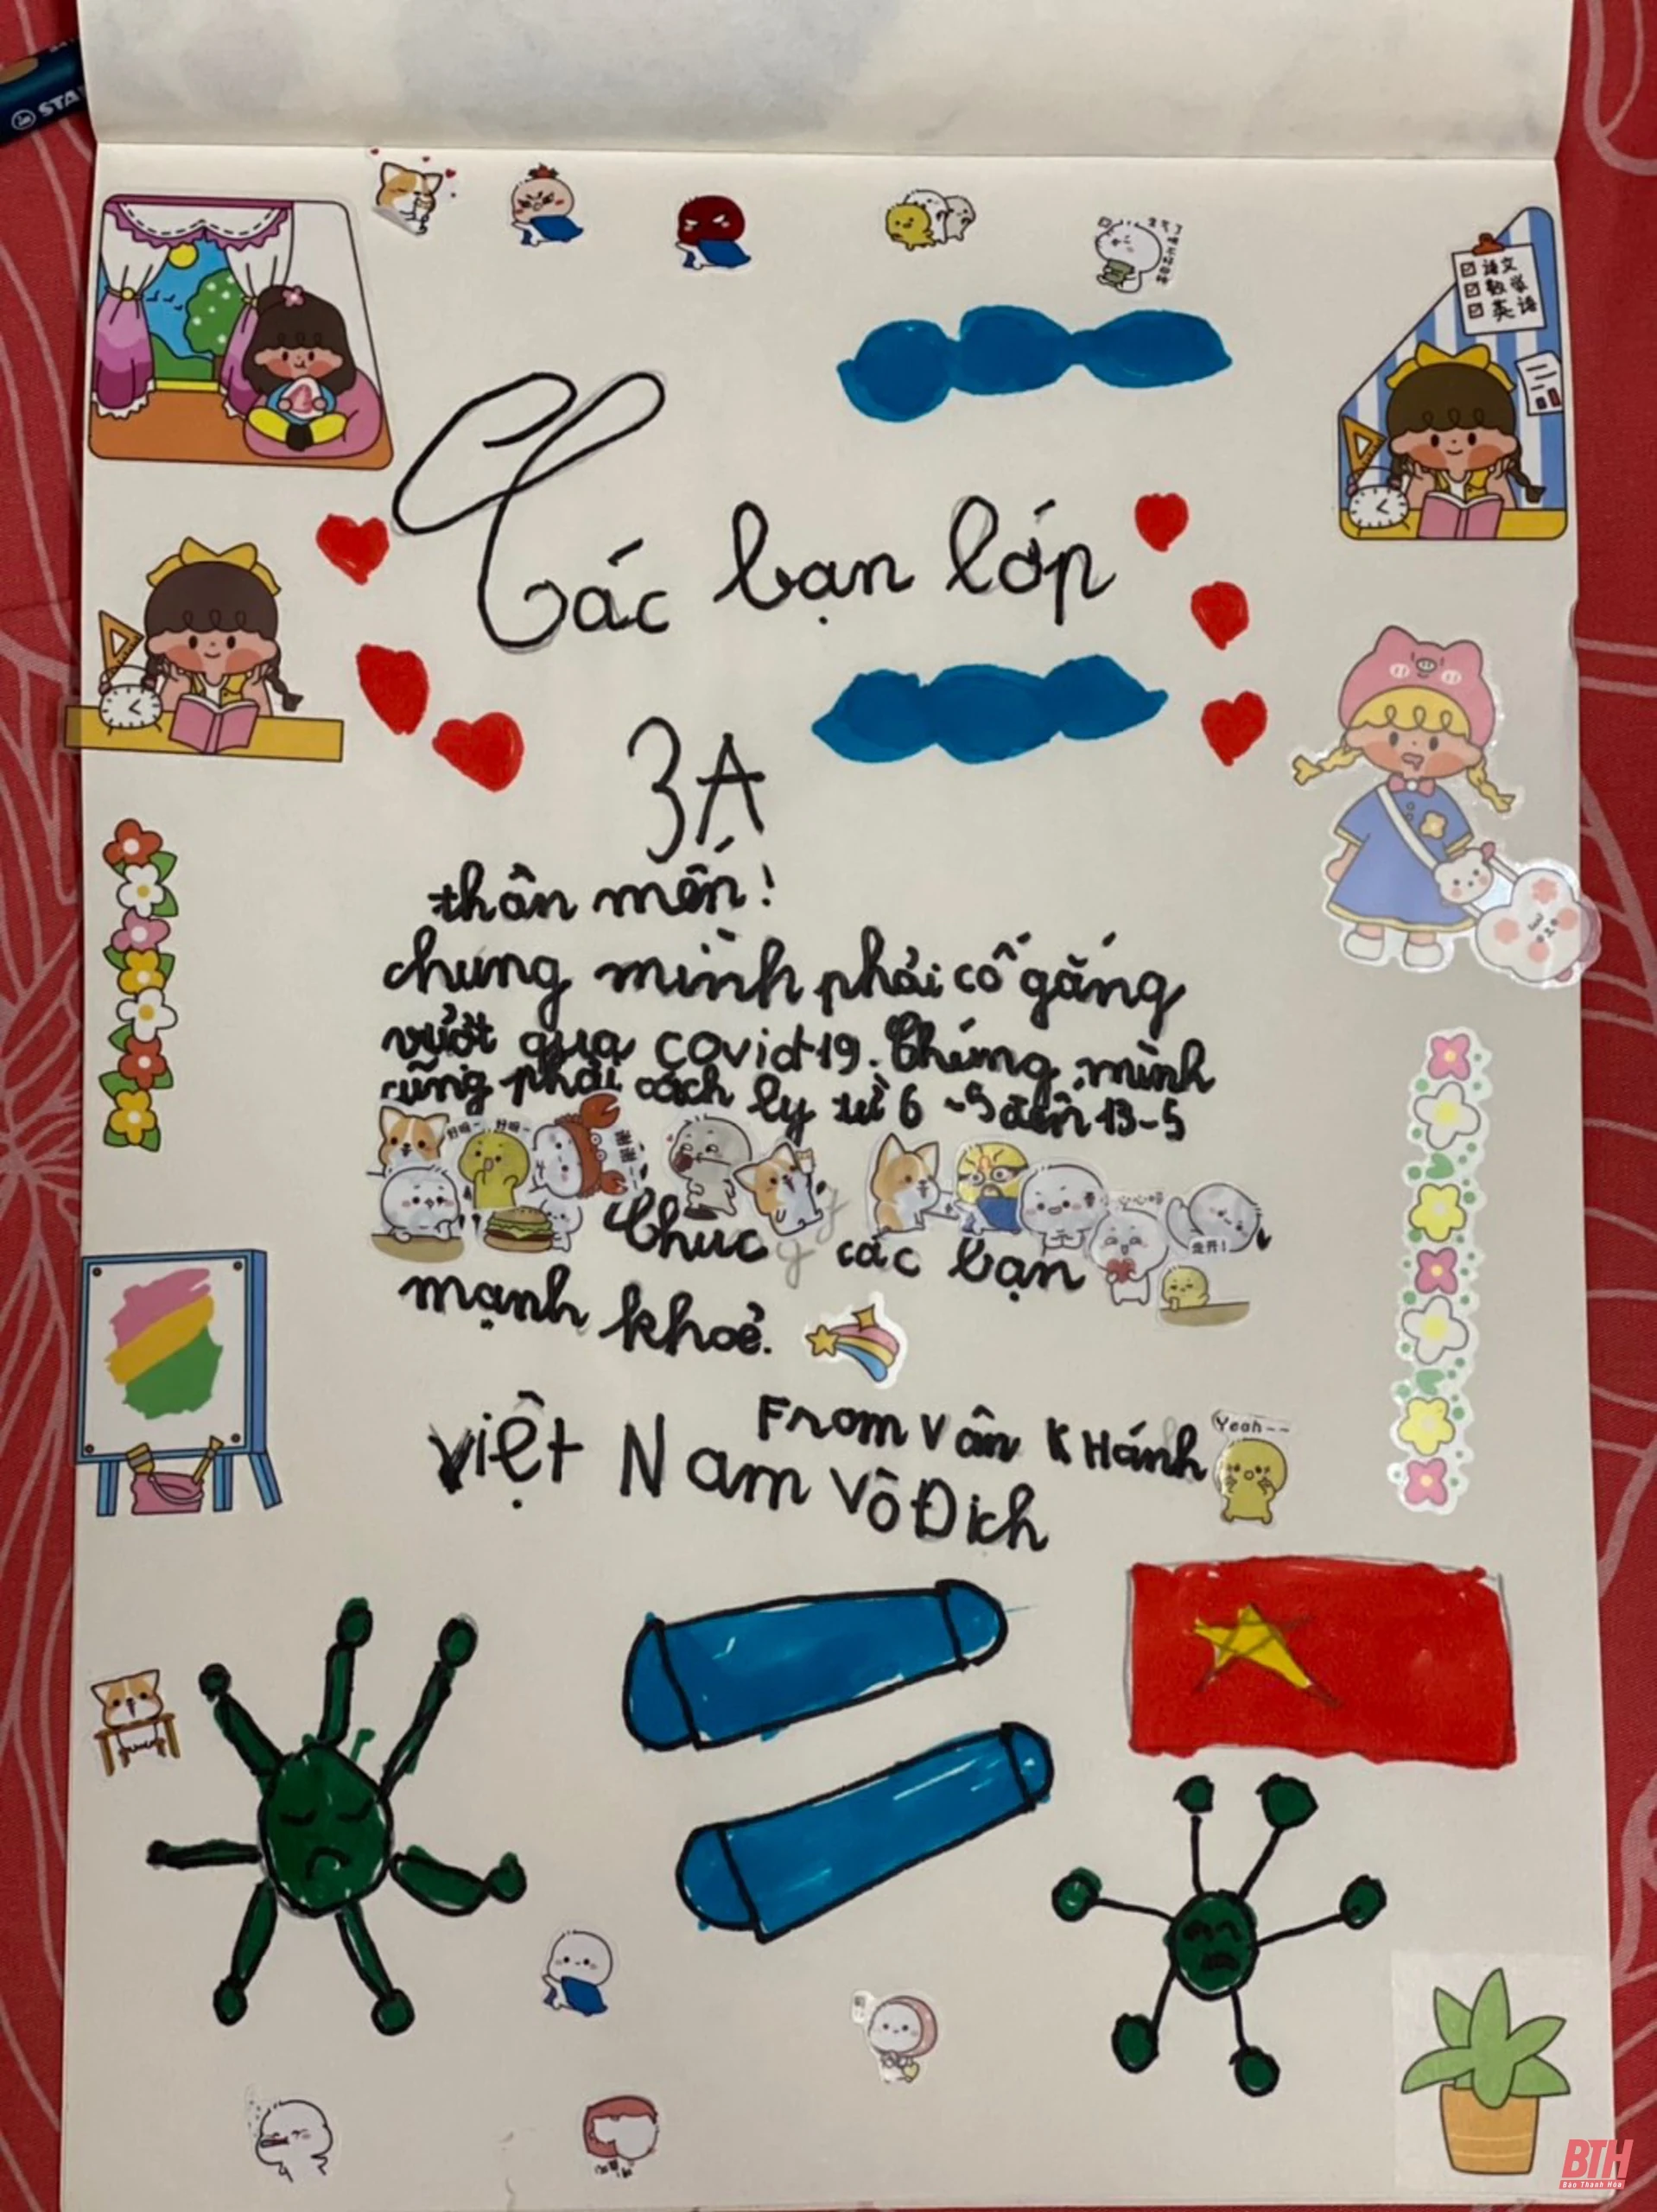 STA
语文
数学
英语
Các bạn lớp
3A
thân mến!
chung mình phải cố gắng
vượt qua covid19. Chúng mình
cũng phải cách ly từ 6-5 đến 13-5
好呀~ 好呀~
Chuc các bạn
走开!
mạnh khoẻ.
From Vân KHánh
Yeah~~
việt Nam Vô Đich
BTH
Báo Thanh Hóa